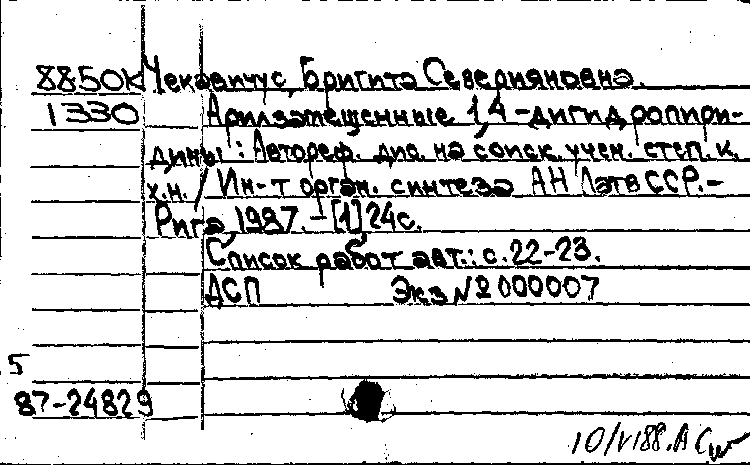 8850К Чекавичус, Бригита Северияновна.
1330 Арилзамещенные 1,4-дигидропири-
дины: Автореф. дис. на соиск. учен. степ. к.
х.н. / Ин-т орган. синтеза АН ЛатвССР.-
Рига, 1987.-[1]24с.
Список работ авт.: с.22-23.
АСП Экз № 000007
5
87-24829
10/V188.А